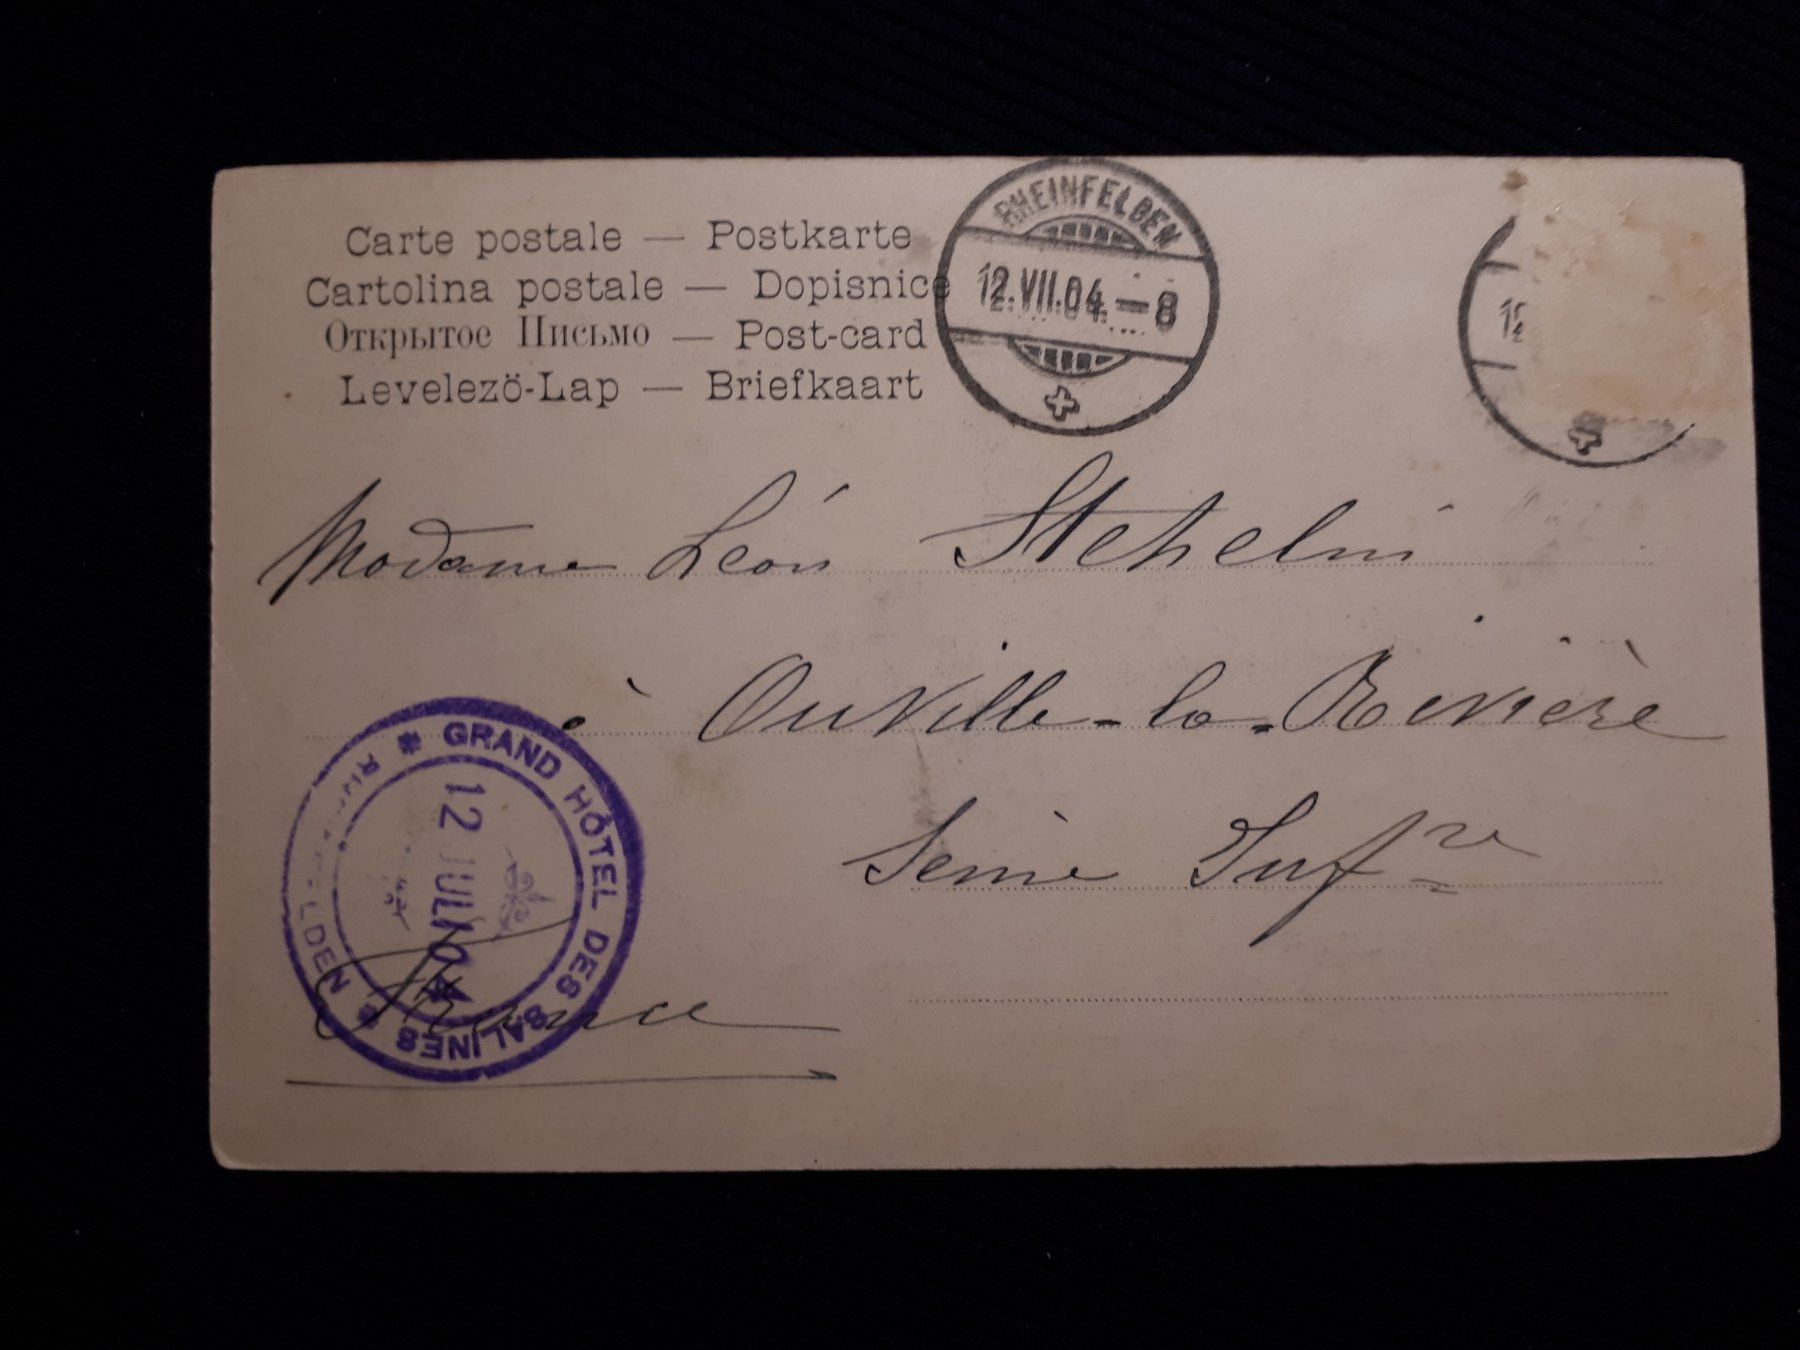 Carte postale — Postkarte
Cartolina postale — Dopisnice
Открытое Письмо — Post-card
Levelező-Lap — Briefkaart
RHEINFELDEN
12.VII.04.–8
Madame Léon Stehelin
à Ouville-la-Rivière
Seine Infre
France
GRAND HÔTEL DES SALINES
12 JUIL 04